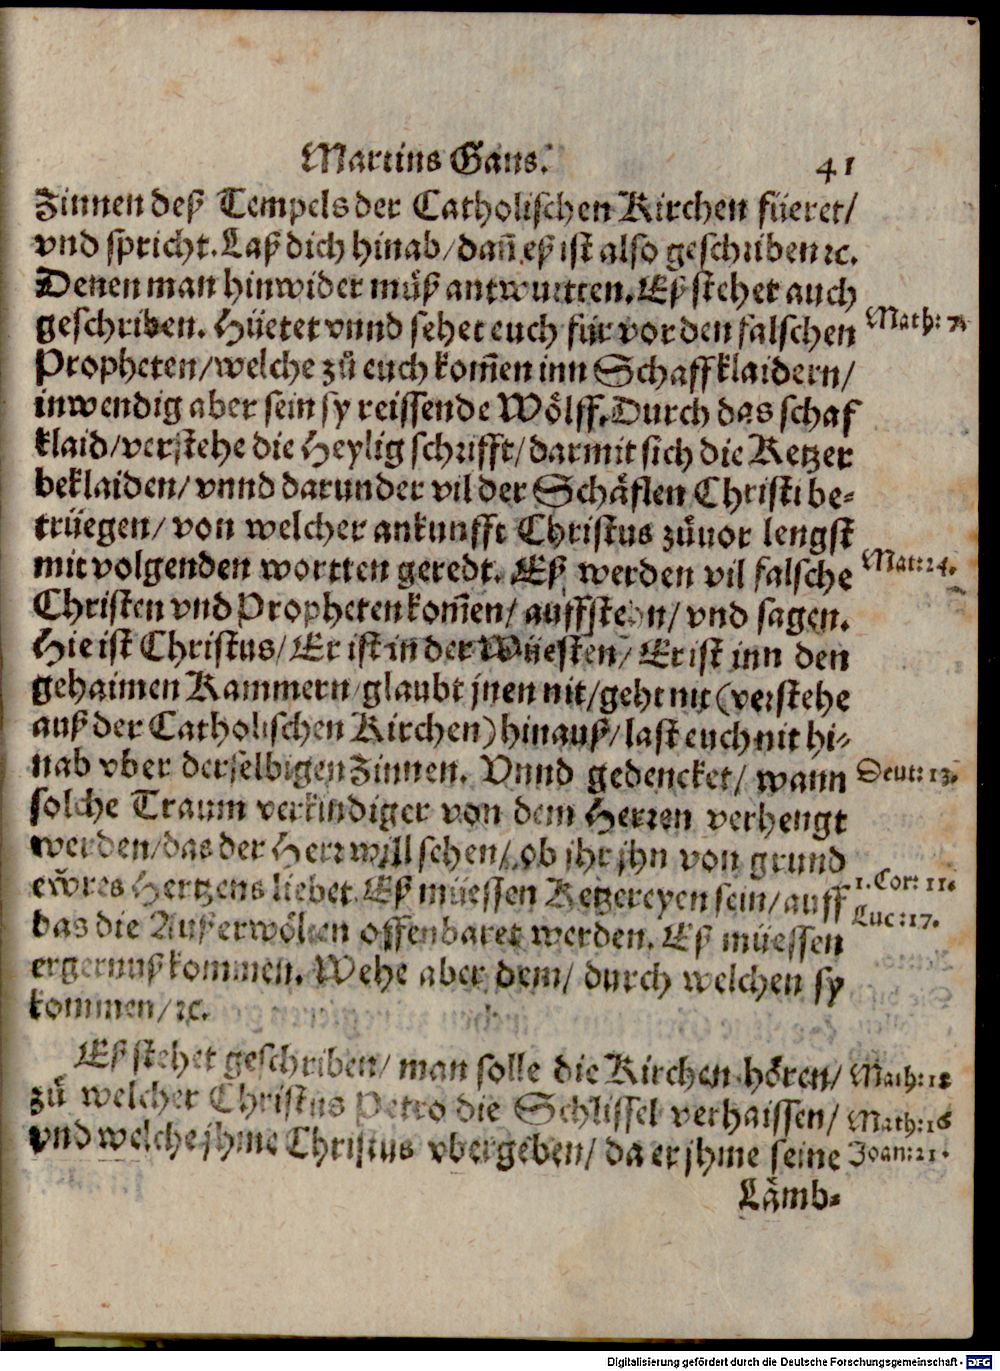 Martins Gans. 41
Zinnen deß Tempels der Catholischen Kirchen füeret/
vnd spricht. Laß dich hinab/dañ eß ist also geschriben ꝛc.
Denen man hinwider můß antwurtten. Eß stehet auch
geschriben. Hüetet vnnd sehet euch für vor den falschen Math: 7.
Propheten/welche zů euch kom̃en inn Schaffklaidern/
inwendig aber sein sy reissende Wölff. Durch das schaf
klaid/verstehe die Heylig schrifft/darmit sich die Ketzer
beklaiden/vnnd darunder vil der Schäflen Christi be-
trüegen/ von welcher ankunfft Christus zůuor lengst
mit volgenden wortten geredt. Eß werden vil falsche Mat: 24.
Christen vnd Propheten kom̃en/ auffstehn/ vnd sagen.
Hie ist Christus/ Er ist in der Wüesten/ Er ist inn den
gehaimen Kammern/glaubt jnen nit/geht nit (verstehe
auß der Catholischen Kirchen) hinauß/last euch nit hi-
nab vber derselbigen Zinnen. Vnnd gedencket/ wann Deut: 13.
solche Traum verkindiger von dem Herren verhengt
werden/das der Herr will sehen/ ob ihr jhn von grund
ewres Hertzens liebet. Eß müessen Ketzereyen sein/auff 1. Cor: 11.
das die Außerwölten offenbaret werden. Eß müessen Luc: 17.
ergernuß kommen. Wehe aber dem/ durch welchen sy
kommen/ꝛc.
Eß stehet geschriben/ man solle die Kirchen hören/ Math: 18
zů welcher Christus Petro die Schlissel verhaissen/ Math: 16
vnd welche jhme Christus vbergeben/ da er jhme seine Joan: 21.
Lämb-
Digitalisierung gefördert durch die Deutsche Forschungsgemeinschaft - DFG